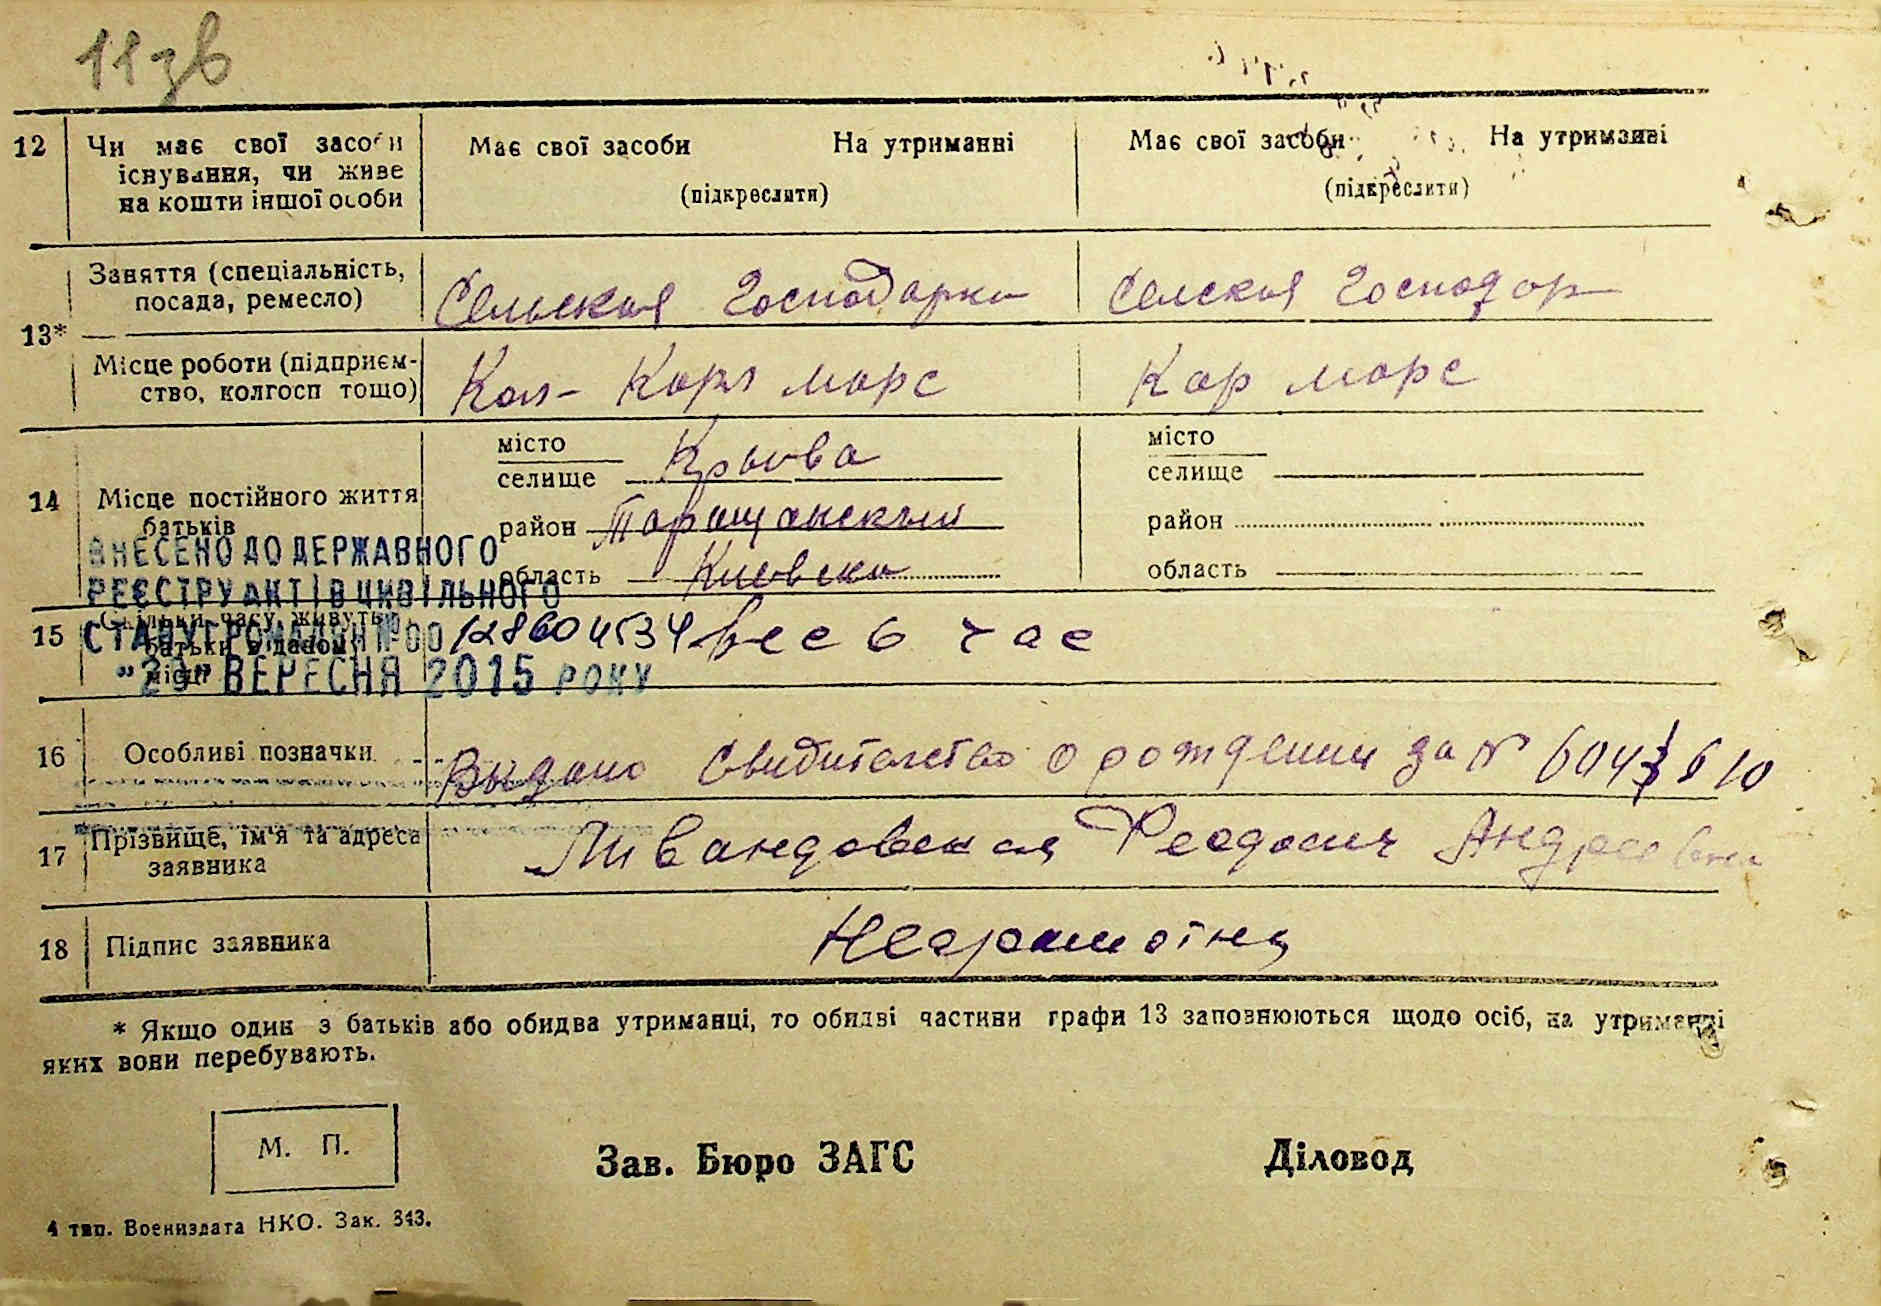 11 зв
12 Чи має свої засоби Має свої засоби На утриманні Має свої засоби На утриманні
існування, чи живе (підкреслити) (підкреслити)
на кошти іншої особи
Заняття (спеціальність,
посада, ремесло) Сельская Господарка Селская Господар
13*
Місце роботи (підприєм-
ство, колгосп тощо) Кол- Карл Марс Кар Марс
місто місто
селище Крыва селище
14 Місце постійного життя
батьків район Таращанский район
область Киевска область
ВНЕСЕНО ДО ДЕРЖАВНОГО
РЕЄСТРУ АКТІВ ЦИВІЛЬНОГО
15 Скільки часу живуть
батьки в даном
місці весь час
СТАНУ ГРОМАДЯН № 00128604534
"30" ВЕРЕСНЯ 2015 РОКУ
16 Особливі позначки Выдано Свидителство о рождении за №
17 Прізвище, ім'я та адреса
заявника Ливандовская Феодосия Андреевна
18 Підпис заявника Неграмотна
* Якщо один з батьків або обидва утриманці, то обидві частини графи 13 заповнюються щодо осіб, на утриманні
яких вони перебувають.
М. П.
Зав. Бюро ЗАГС Діловод
4 тип. Воениздата НКО. Зак. 343.